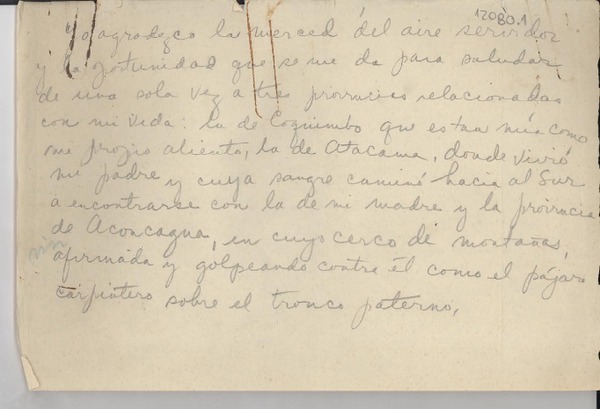 12080.1
Yo agradezco la merced del aire servidor
y la oportunidad que se me da para saludar
de una sola vez a tres provincias relacionadas
con mi vida: la de Coquimbo que es tan mía como
mi propio aliento, la de Atacama, donde vivió
mi padre y cuya sangre caminó hacia al Sur
a encontrarse con la de mi madre y la provincia
de Aconcagua, en cuyo cerco de montañas,
afirmada y golpeando contra él como el pájaro
carpintero sobre el tronco paterno,